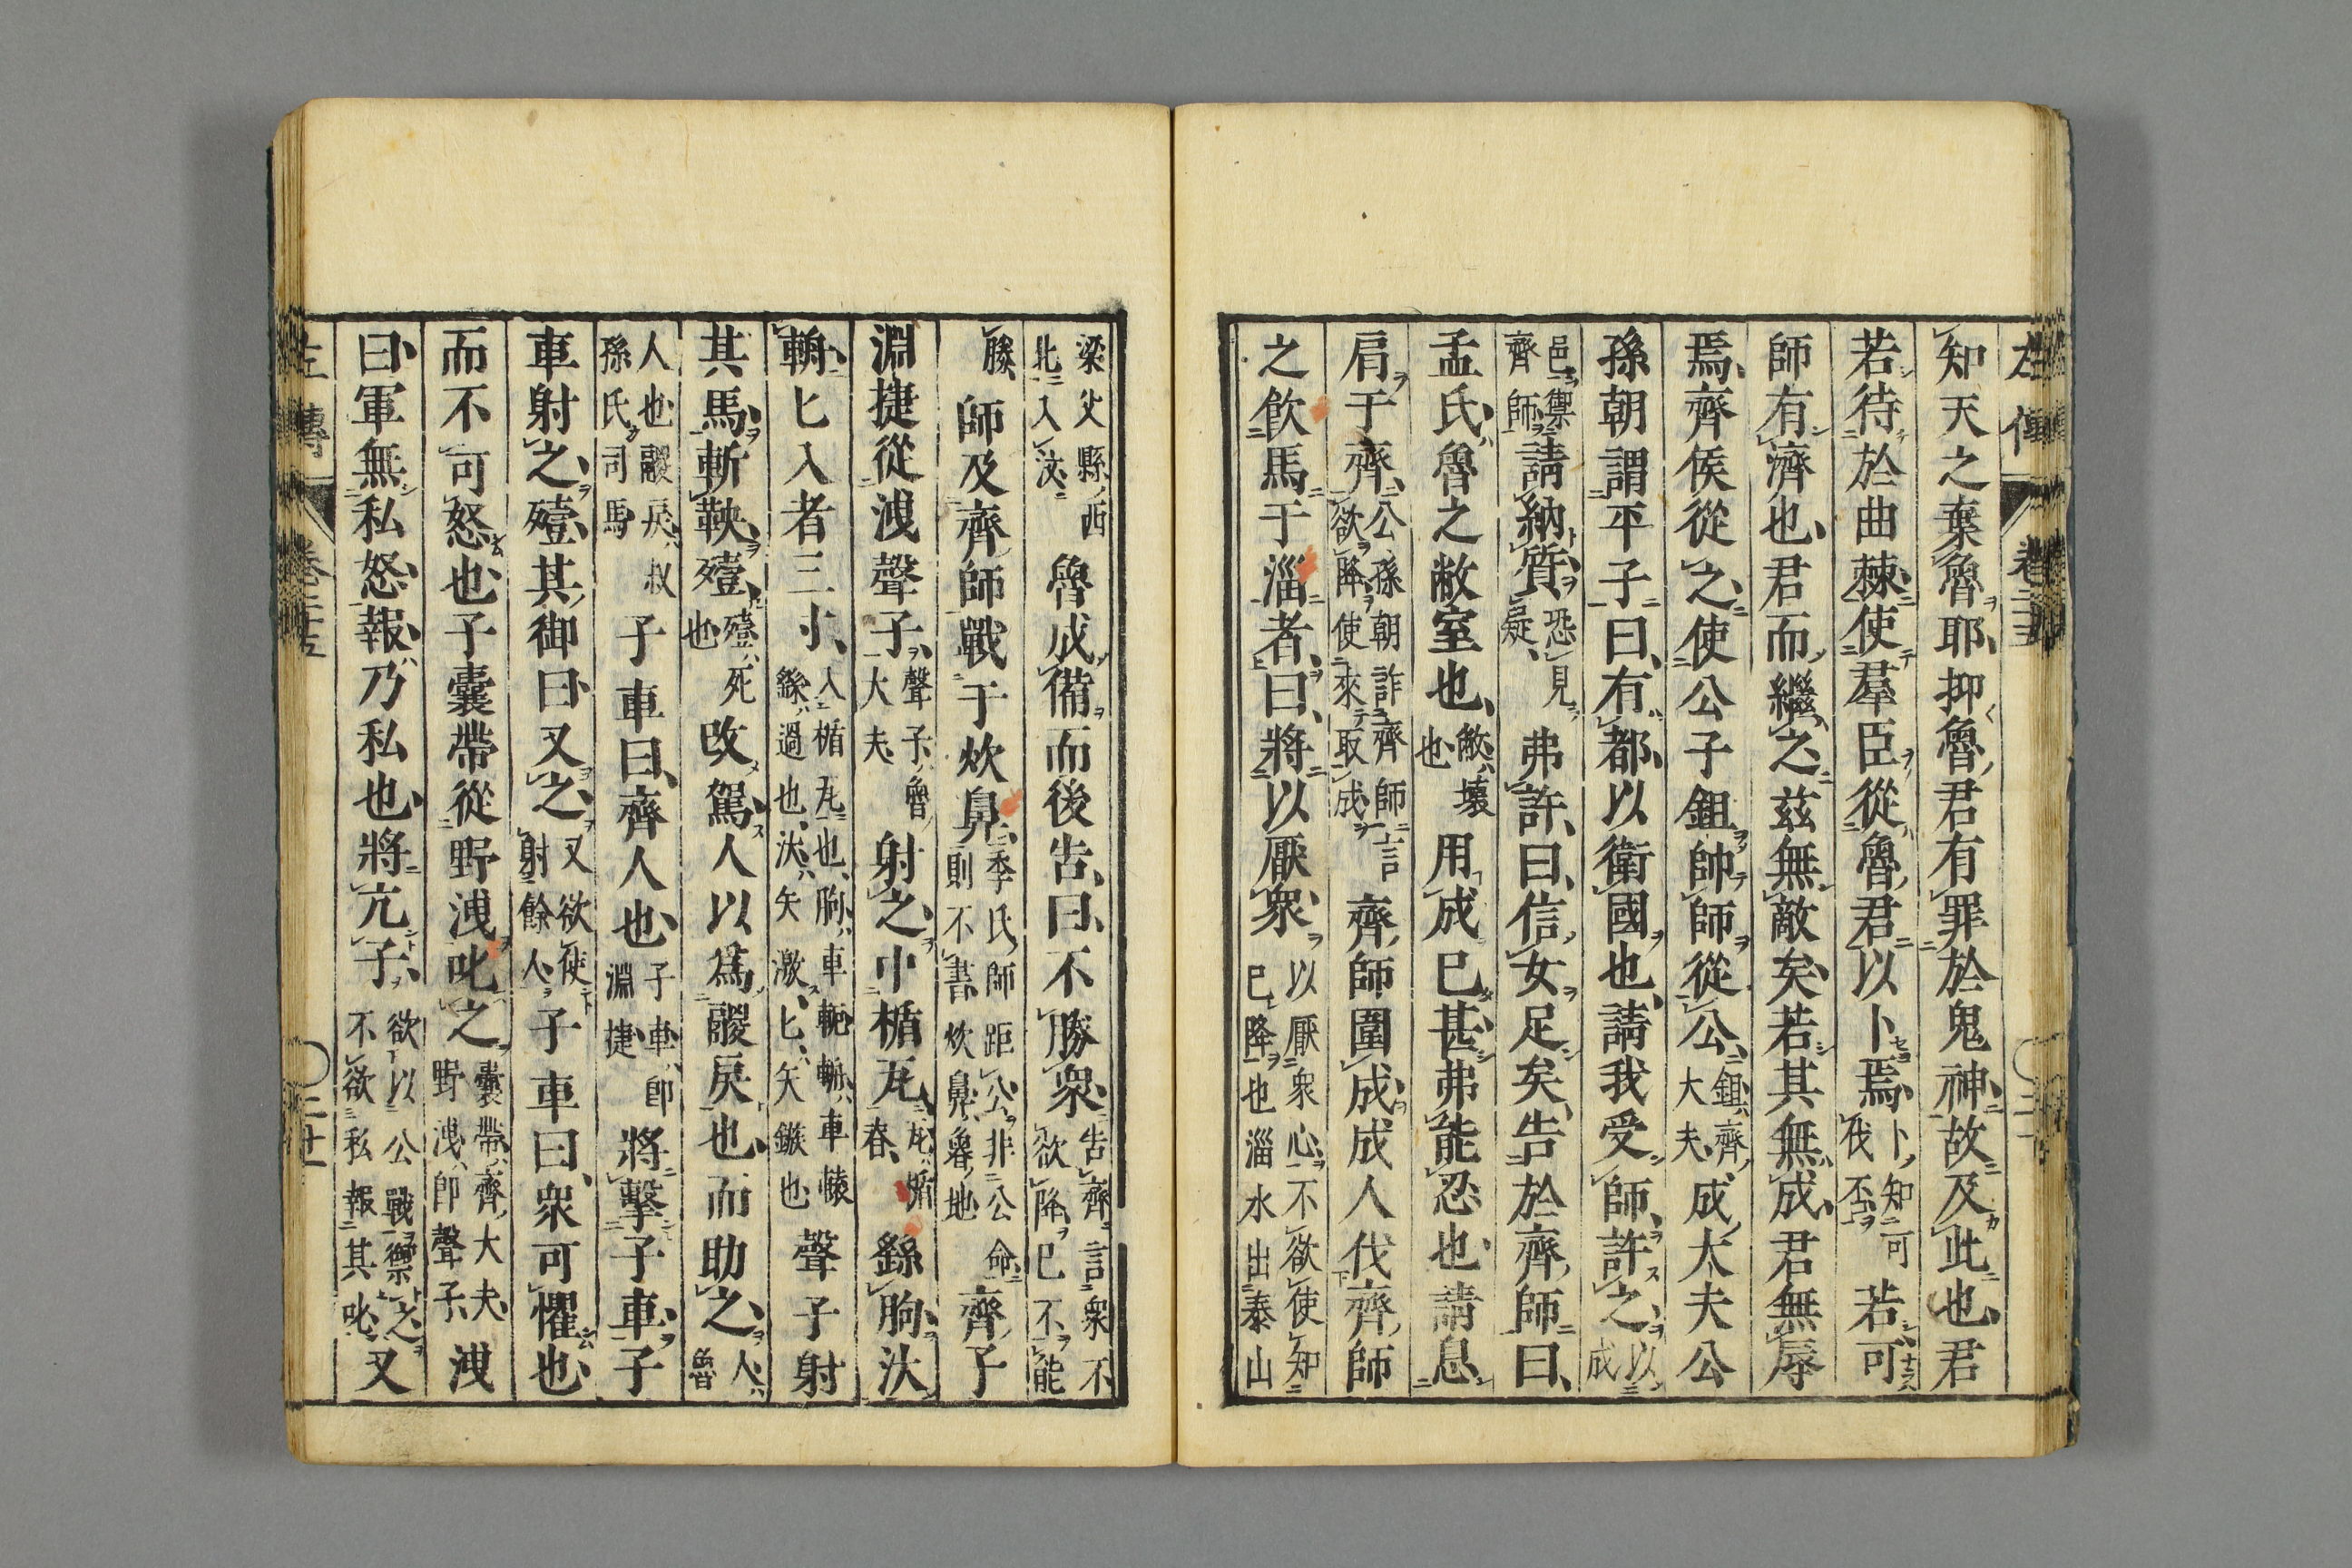 左傳 卷二十五
知天之棄魯耶抑魯君有罪於鬼神故及此也君
若待於曲棘使羣臣從魯君以卜焉卜知可伐否若可
師有濟也君而繼之茲無敵矣若其無成君無辱
焉齊侯從之使公子鉏帥師從公鉏齊大夫成大夫公
孫朝謂平子曰有都以衛國也請我受師許之以成
邑禦齊師請納質恐見疑弗許曰信女足矣告於齊師曰
孟氏魯之敝室也敝壞也用成已甚弗能忍也請息
肩于齊公孫朝詐齊師言欲降使來取成齊師圍成成人伐齊師
之飲馬于淄者曰將以厭衆以厭衆心不欲使知已降也淄水出泰山
梁父縣西北入汶魯成備而後告曰不勝衆告齊言衆不欲降已不能
勝師及齊師戰于炊鼻季氏師距公非公命則不書炊鼻魯地齊子
淵捷從洩聲子聲子魯大夫射之中楯瓦瓦楯脊繇朐汰
輈匕入者三寸入楯瓦也朐車軛輈車轅繇過也汰矢激匕矢鏃也聲子射
其馬斬鞅殪殪死也改駕人以爲鬷戾也而助之人魯
人也鬷戾叔孫氏司馬子車曰齊人也子車卽淵捷將擊子車子
車射之殪其御曰又之又欲使射餘人子車曰衆可懼也
而不可怒也子囊帶從野洩叱之囊帶齊大夫野洩卽聲子洩
曰軍無私怒報乃私也將亢子欲以公戰禦之不欲私報其叱又
左傳 卷二十五 二十一